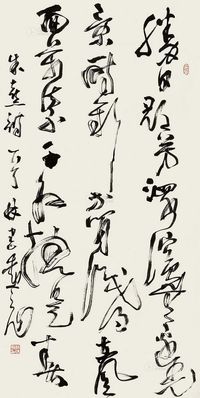 勝日尋芳泗水濱無邊光
景一時新等閑識得東風
面萬紫千紅總是春
朱熹詩